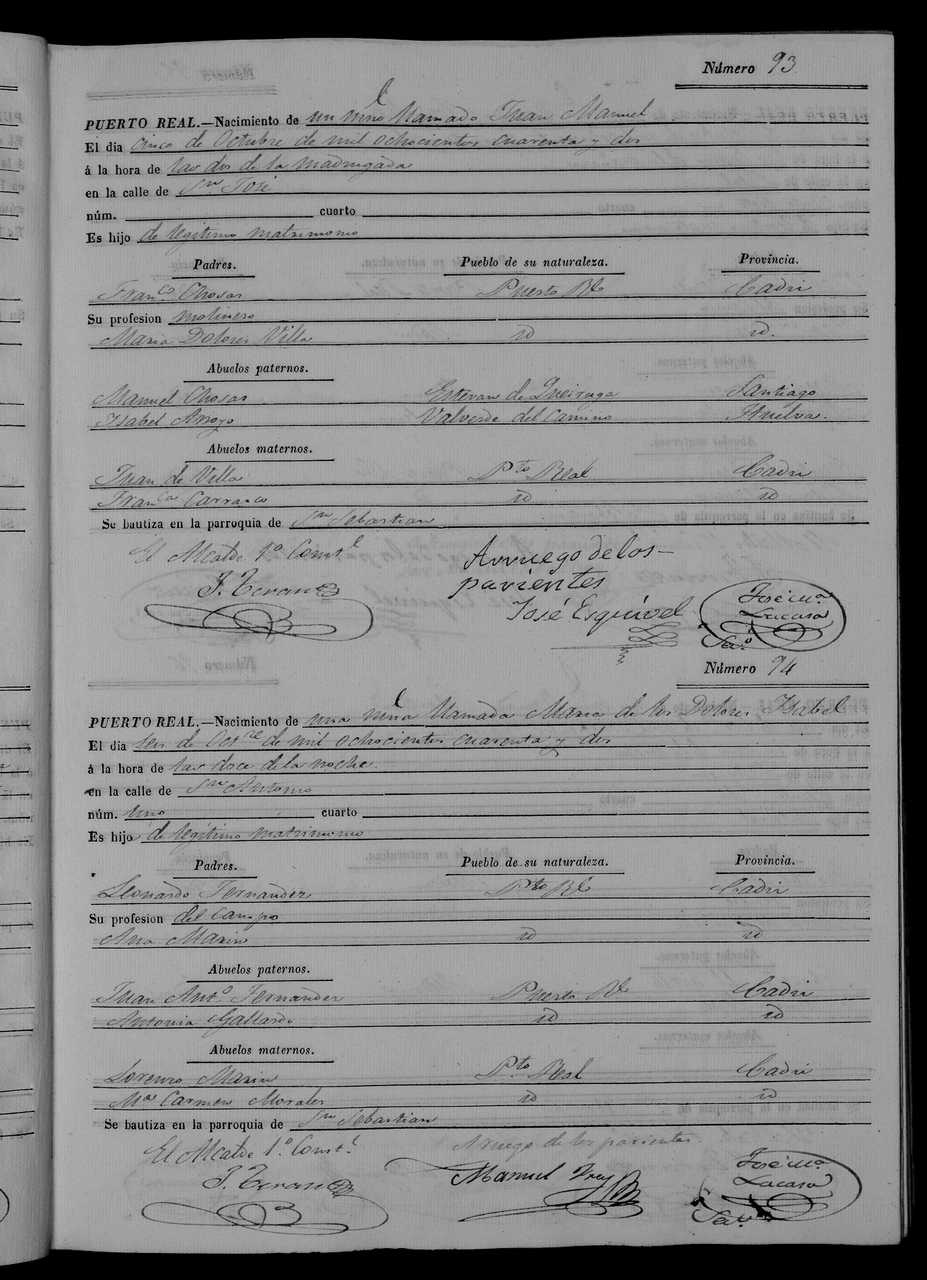 Número 93
PUERTO REAL.—Nacimiento de un niño llamado Juan Manuel
El dia cinco de Octubre de mil ochocientos cuarenta y dos
á la hora de las dos de la madrugada
en la calle de Sn José
núm. cuarto
Es hijo de legitimo matrimonio
Padres. Pueblo de su naturaleza. Provincia.
Franco Chosas Puerto Rl Cadiz
Su profesion molinero
Maria Dolores Villa id id.
Abuelos paternos.
Manuel Chosas Estevan de Santiago
Isabel Arroyo Valverde del Camino Huelva.
Abuelos maternos.
Juan de Villa Pto Real Cadiz
Franca Carrasco id id
Se bautiza en la parroquia de Sn Sebastian
El Alcalde 1º Constl
Arruego de los
parientes
J. Teran
José Esquivel
José Mª
Lacasa
Número 94
PUERTO REAL.—Nacimiento de una niña llamada Maria de los Dolores Isabel
El dia seis de Octre de mil ochocientos cuarenta y dos
á la hora de las doce de la noche
en la calle de Sn Antonio
núm. uno cuarto
Es hijo de legitimo matrimonio
Padres. Pueblo de su naturaleza. Provincia.
Leonardo Fernandez Pto Rl Cadiz
Su profesion del campo
Ana Marin id id
Abuelos paternos.
Juan Anto Fernandez Puerto Rl Cadiz
Antonia Gallardo id id
Abuelos maternos.
Lorenzo Marin Pto Real Cadiz
Ma Carmen Morales id id
Se bautiza en la parroquia de Sn Sebastian
El Alcalde 1º Constl
Arruego de los parientes
J. Teran
Manuel
José Mª
Lacasa